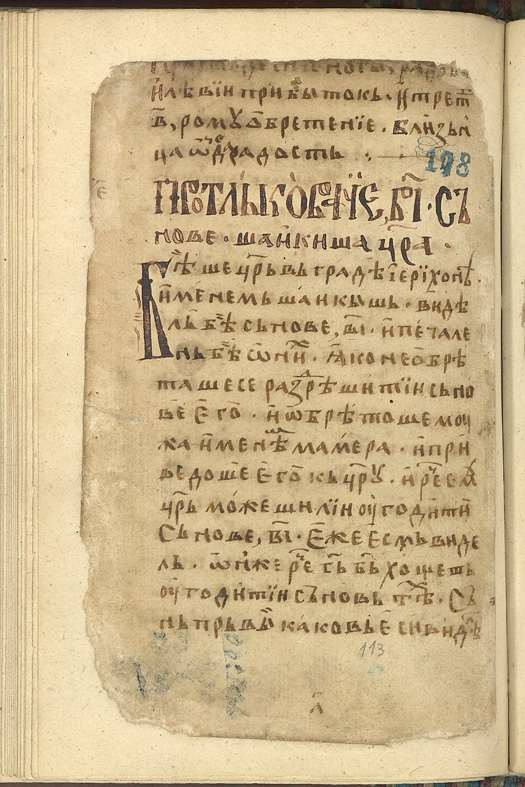 илѣвїи прибытокь · и трет
в҃, ромꙋ обретенїе · близьн
ца ѿ радость
198
протлькованїе, в҃ı · съ
нове · шаикиша ц҃ра ·
Бѣше ц҃рь вь градѣ їерїхонѣ
именемь шаикышь · видѣ
ль бѣ сьнове, в҃ı · и печале
нь бѣ ѡ ни · ꙗко не обрѣ
таше се разрѣшитїи сьно
вѣ его · и ѡбрѣтоше моу
жа именѣм мамера · и при
ведоше его кь ц҃рꙋ · и рече емꙋ
ц҃рь може ши ли їи оугодити
сьнове, в҃ı · еже есмь виде
ль · ѡн же рече бь хощеть
оугодитїи сьновь твѣ · сь
нь прьвы каковь е си видѣ
113